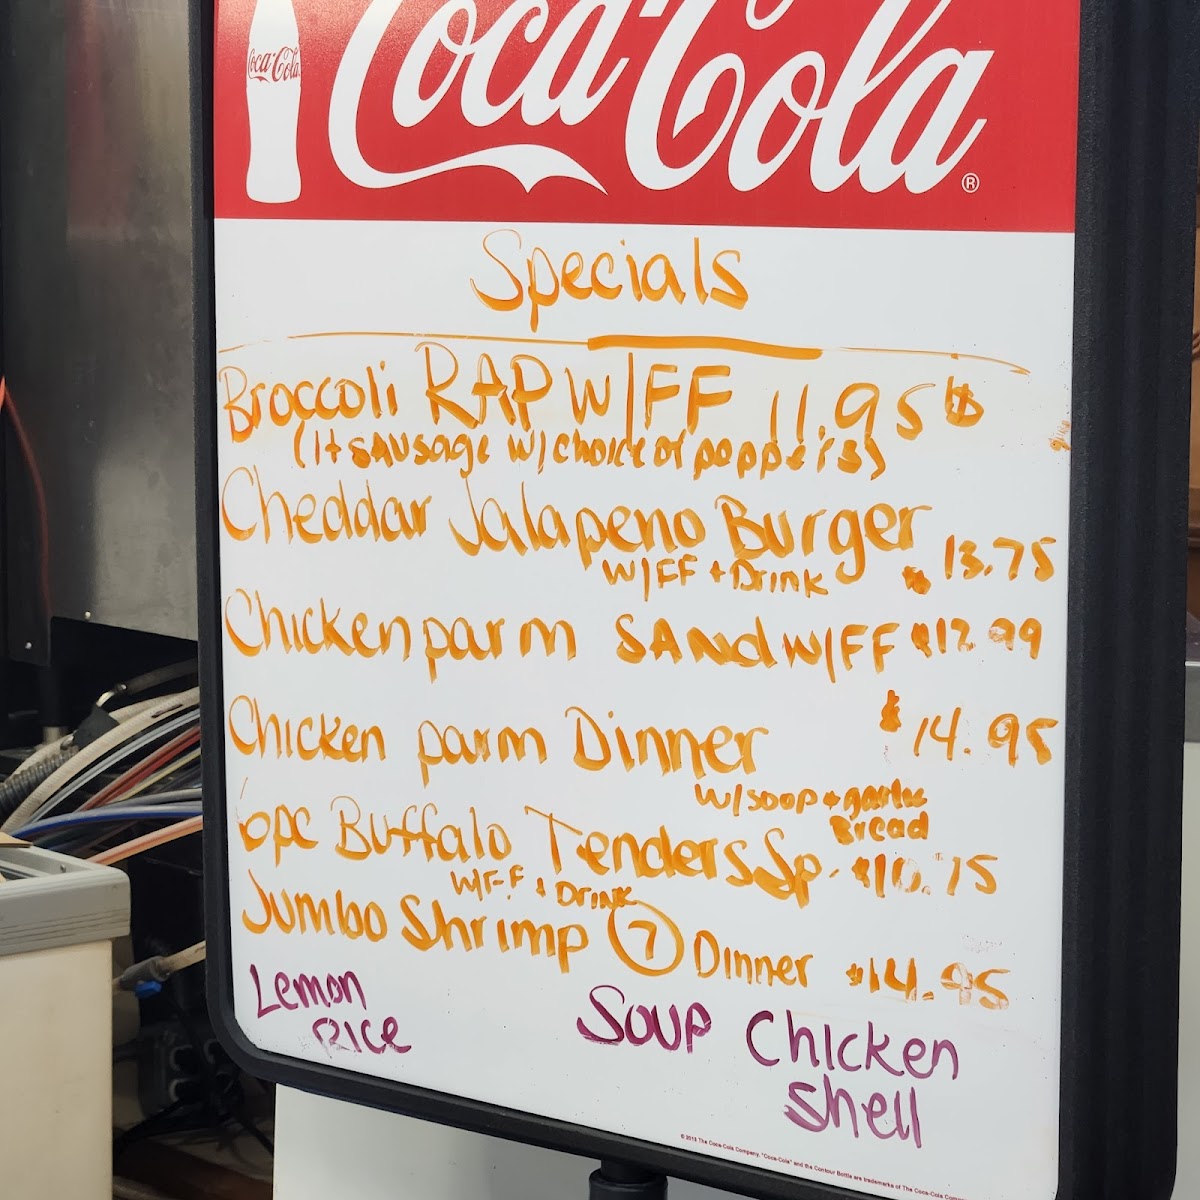 Coca-Cola
Coca-Cola®
Specials
Broccoli RAP W/FF 11.95 $
(It sausage w/choice of peppers)
Cheddar Jalapeno Burger
W/FF + Drink $13.75
Chicken parm SANd W/FF $12.99
Chicken parm Dinner $14.95
W/soop + garlic
Bread
6pc Buffalo Tenders Sp. $10.75
W/F.F & Drink
Jumbo Shrimp 7 Dinner $14.95
Lemon
Rice
Soup Chicken
Shell
© 2015 The Coca-Cola Company. "Coca-Cola" and the Contour Bottle are trademarks of The Coca-Cola